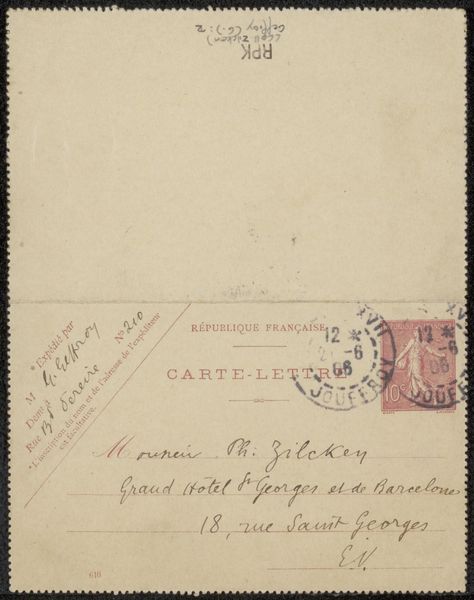 RPK
(coll Zilcken)
Geffroy (G.): 2
RÉPUBLIQUE FRANÇAISE
CARTE-LETTRE
* Expédié par
M G. Geffroy
Demt à
Rue Bd Pereire
No 210
* L'inscription du nom et de l'adresse de l'expéditeur
est facultative.
XVII
12 *
-6
06
JOUFFROY
XVII
12 *
-6
06
JOUFFROY
10c
Monsieur Ph. Zilcken
Grand Hotel St Georges et de Barcelone
18, rue Saint Georges
E.V.
616